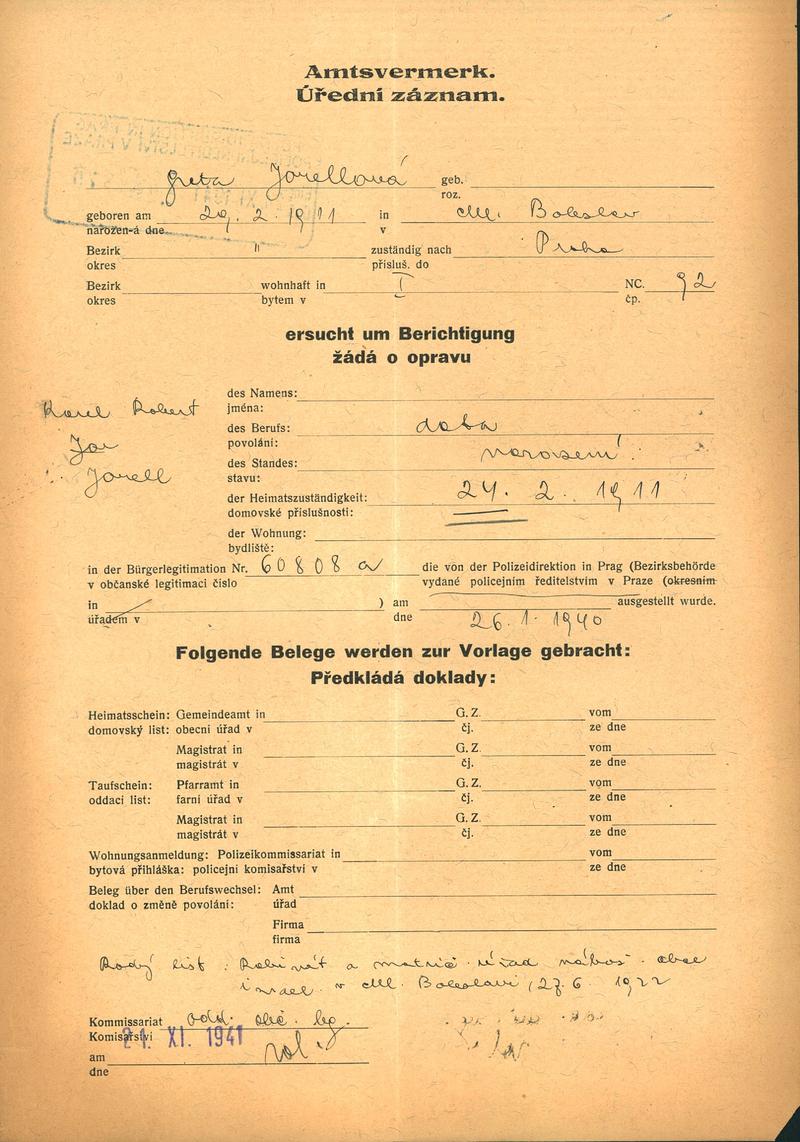 Amtsvermerk.
Úřední záznam.
Greta Jorellová geb.
roz.
geboren am 29. 2. 1911 in Ml. Boleslav
narozen-á dne v
Bezirk " zuständig nach Praha
okres přísluš. do
Bezirk wohnhaft in I NC. 92
okres bytem v čp.
ersucht um Berichtigung
žádá o opravu
des Namens:
Karel Robert jména:
des Berufs: data
Jor povolání:
des Standes: narození:
Jorell stavu:
der Heimatszuständigkeit: 24. 2. 1911
domovské příslušnosti:
der Wohnung:
bydliště:
in der Bürgerlegitimation Nr. 60808 a die von der Polizeidirektion in Prag (Bezirksbehörde
v občanské legitimaci číslo vydané policejním ředitelstvím v Praze (okresním
in ) am ausgestellt wurde.
úřadem v dne 26. 1. 1940
Folgende Belege werden zur Vorlage gebracht:
Předkládá doklady:
Heimatsschein: Gemeindeamt in G. Z. vom
domovský list: obecní úřad v čj. ze dne
Magistrat in G. Z. vom
magistrát v čj. ze dne
Taufschein: Pfarramt in G. Z. vom
oddací list: farní úřad v čj. ze dne
Magistrat in G. Z. vom
magistrát v čj. ze dne
Wohnungsanmeldung: Polizeikommissariat in vom
bytová přihláška: policejní komisařství v ze dne
Beleg über den Berufswechsel: Amt
doklad o změně povolání: úřad
Firma
firma
Rodný list: Rabinát a matrič. úřad nábož. obce
israel. v Ml. Boleslavi, 27. 6. 1922
Kommissariat odd. obč. leg.
Komisařství 21. XI. 1941
am
dne